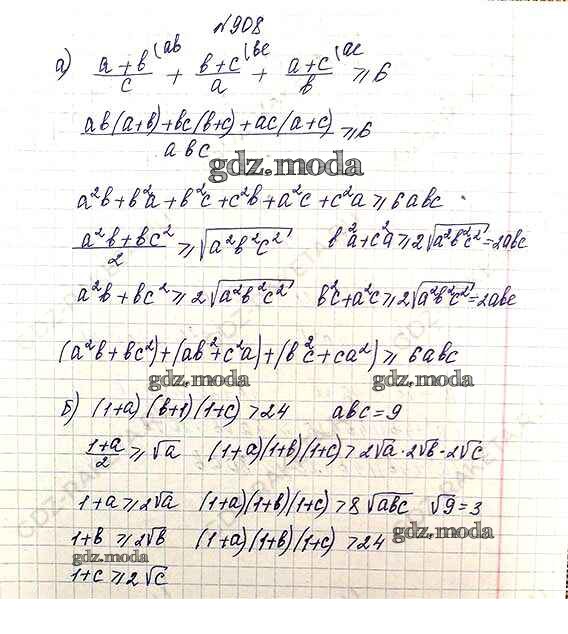 №908
а) (a+b)/c (ab + (b+c)/a (bc + (a+c)/b (ac ≥ 6
(ab(a+b)+bc(b+c)+ac(a+c))/abc ≥ 6
gdz.moda
a²b+b²a+b²c+c²b+a²c+c²a ≥ 6abc
(a²b+bc²)/2 ≥ √(a²b²c²) b²a+c²a ≥ 2√(a²b²c²)=2abc
a²b+bc² ≥ 2√(a²b²c²) b²c+a²c ≥ 2√(a²b²c²)=2abc
(a²b+bc²)+(ab²+c²a)+(b²c+ca²) ≥ 6abc
gdz.moda gdz.moda
б) (1+a)(b+1)(1+c)>24 abc=9
(1+a)/2 ≥ √a (1+a)(1+b)(1+c)>2√a·2√b·2√c
1+a ≥ 2√a (1+a)(1+b)(1+c)>8√abc √9=3
gdz.moda
1+b ≥ 2√b (1+a)(1+b)(1+c)>24
gdz.moda
1+c ≥ 2√c